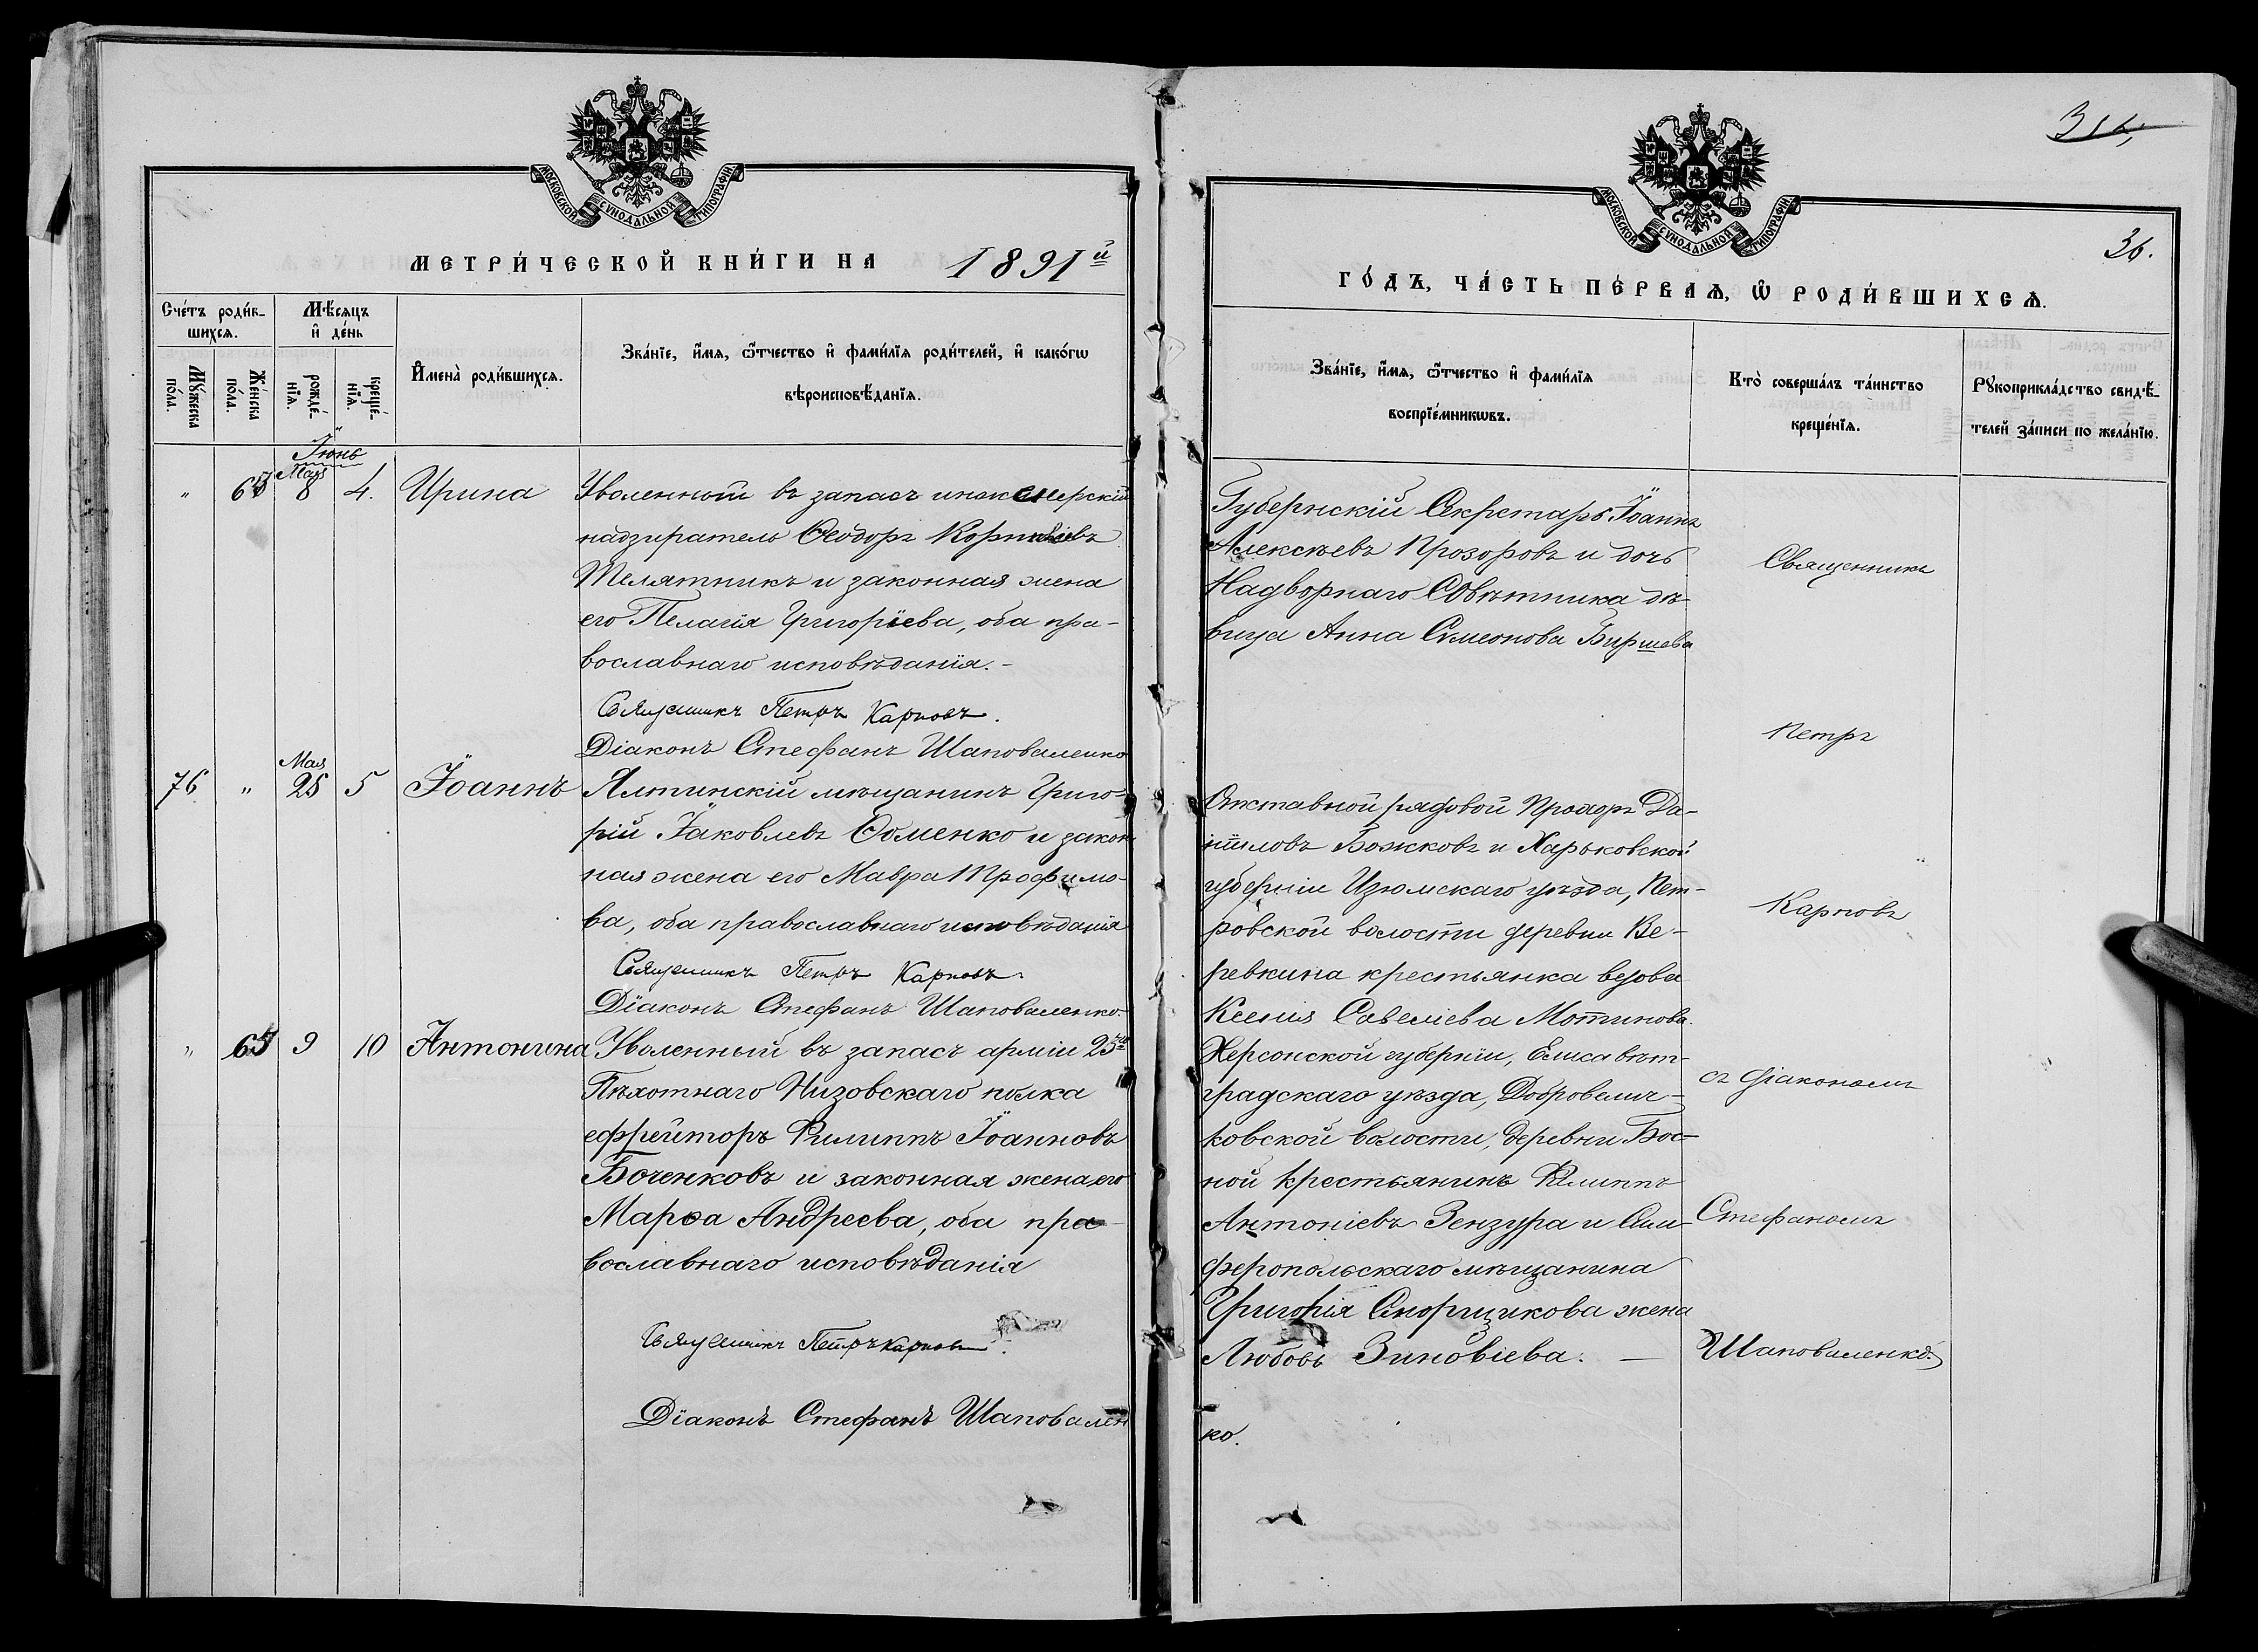 МОСКОВСКОЙ СѴНОДАЛЬНОЙ ТИПОГРАФІИ.
МЕТРИ́ЧЕСКОЙ КНИ́ГИ НА 1891й
Сче́тъ роди́в-
шихсѧ.
Мѣ́сѧцъ
и҆ де́нь
Мꙋ́жеска
по́ла.
Же́нска
по́ла.
рожде́-
нїѧ.
креще́-
нїѧ.
И҆мена̀ роди́вшихсѧ.
Зва́нїе, и҆́мѧ, ѻ҆́тчество и҆ фами́лїѧ роди́телей, и҆ како́гѡ
вѣроисповѣ́данїѧ.
Іюнь
Мая
" 8 4. Ирина Уволенный въ запасъ инженерскій
надзиратель Ѳеодоръ Корниліевъ
Телятникъ и законная жена
его Пелагія Григоріева, оба пра-
вославнаго исповѣданія.-
Священникъ Петръ Карповъ.
Діаконъ Стефанъ Шаповаленко
Мая
76 " 25 5 Іоаннъ Ялтинскій мѣщанинъ Григо-
рій Іаковлевъ Ѳоменко и закон
ная жена его Мавра Трофимо-
ва, оба православнаго исповѣданія
Священникъ Петръ Карповъ.
Діаконъ Стефанъ Шаповаленко
" 9 10 Антонина Уволенный въ запасъ арміи 23го
Пѣхотнаго Низовскаго полка
ефрейторъ Филиппъ Іоанновъ
Боченковъ и законная жена его
Марѳа Андреева, оба пра-
вославнаго исповѣданія
Священникъ Петръ Карповъ.
Діаконъ Стефанъ Шаповален
МОСКОВСКОЙ СѴНОДАЛЬНОЙ ТИПОГРАФІИ.
36.
ГО́ДЪ, ЧА́СТЬ ПЕ́РВАѦ, Ѡ҆ РОДИ́ВШИХСѦ.
Зва́нїе, и҆́мѧ, ѻ҆́тчество и҆ фами́лїѧ
воспрїе́мникѡвъ.
Кто̀ соверша́лъ та́инство
креще́нїѧ.
Рꙋкоприкла́дство свидѣ́-
телей за́писи по жела́нїю.
Губернскій Секретарь Іоаннъ
Алексѣевъ Прозоровъ и дочь
Надворнаго Совѣтника дѣ-
вица Анна Симеонова Биршева
Отставной рядовой Прохоръ Да-
ніиловъ Божковъ и Харьковской
губерніи Изюмскаго уѣзда, Пет-
ровской волости деревни Ве-
ревкина крестьянка вдова
Ксенія Савеліева Мотинова.
Херсонской губерніи, Елисавет-
градскаго уѣзда, Добровелич-
ковской волости, деревни Бос-
ной крестьянинъ Филиппъ
Антоніевъ Зензура и Сим-
феропольскаго мѣщанина
Григорія Сморщикова жена
Любовь Зиновіева. —
ко.
Священникъ
Петръ
Карповъ
съ діакономъ
Стефаномъ
Шаповаленко.